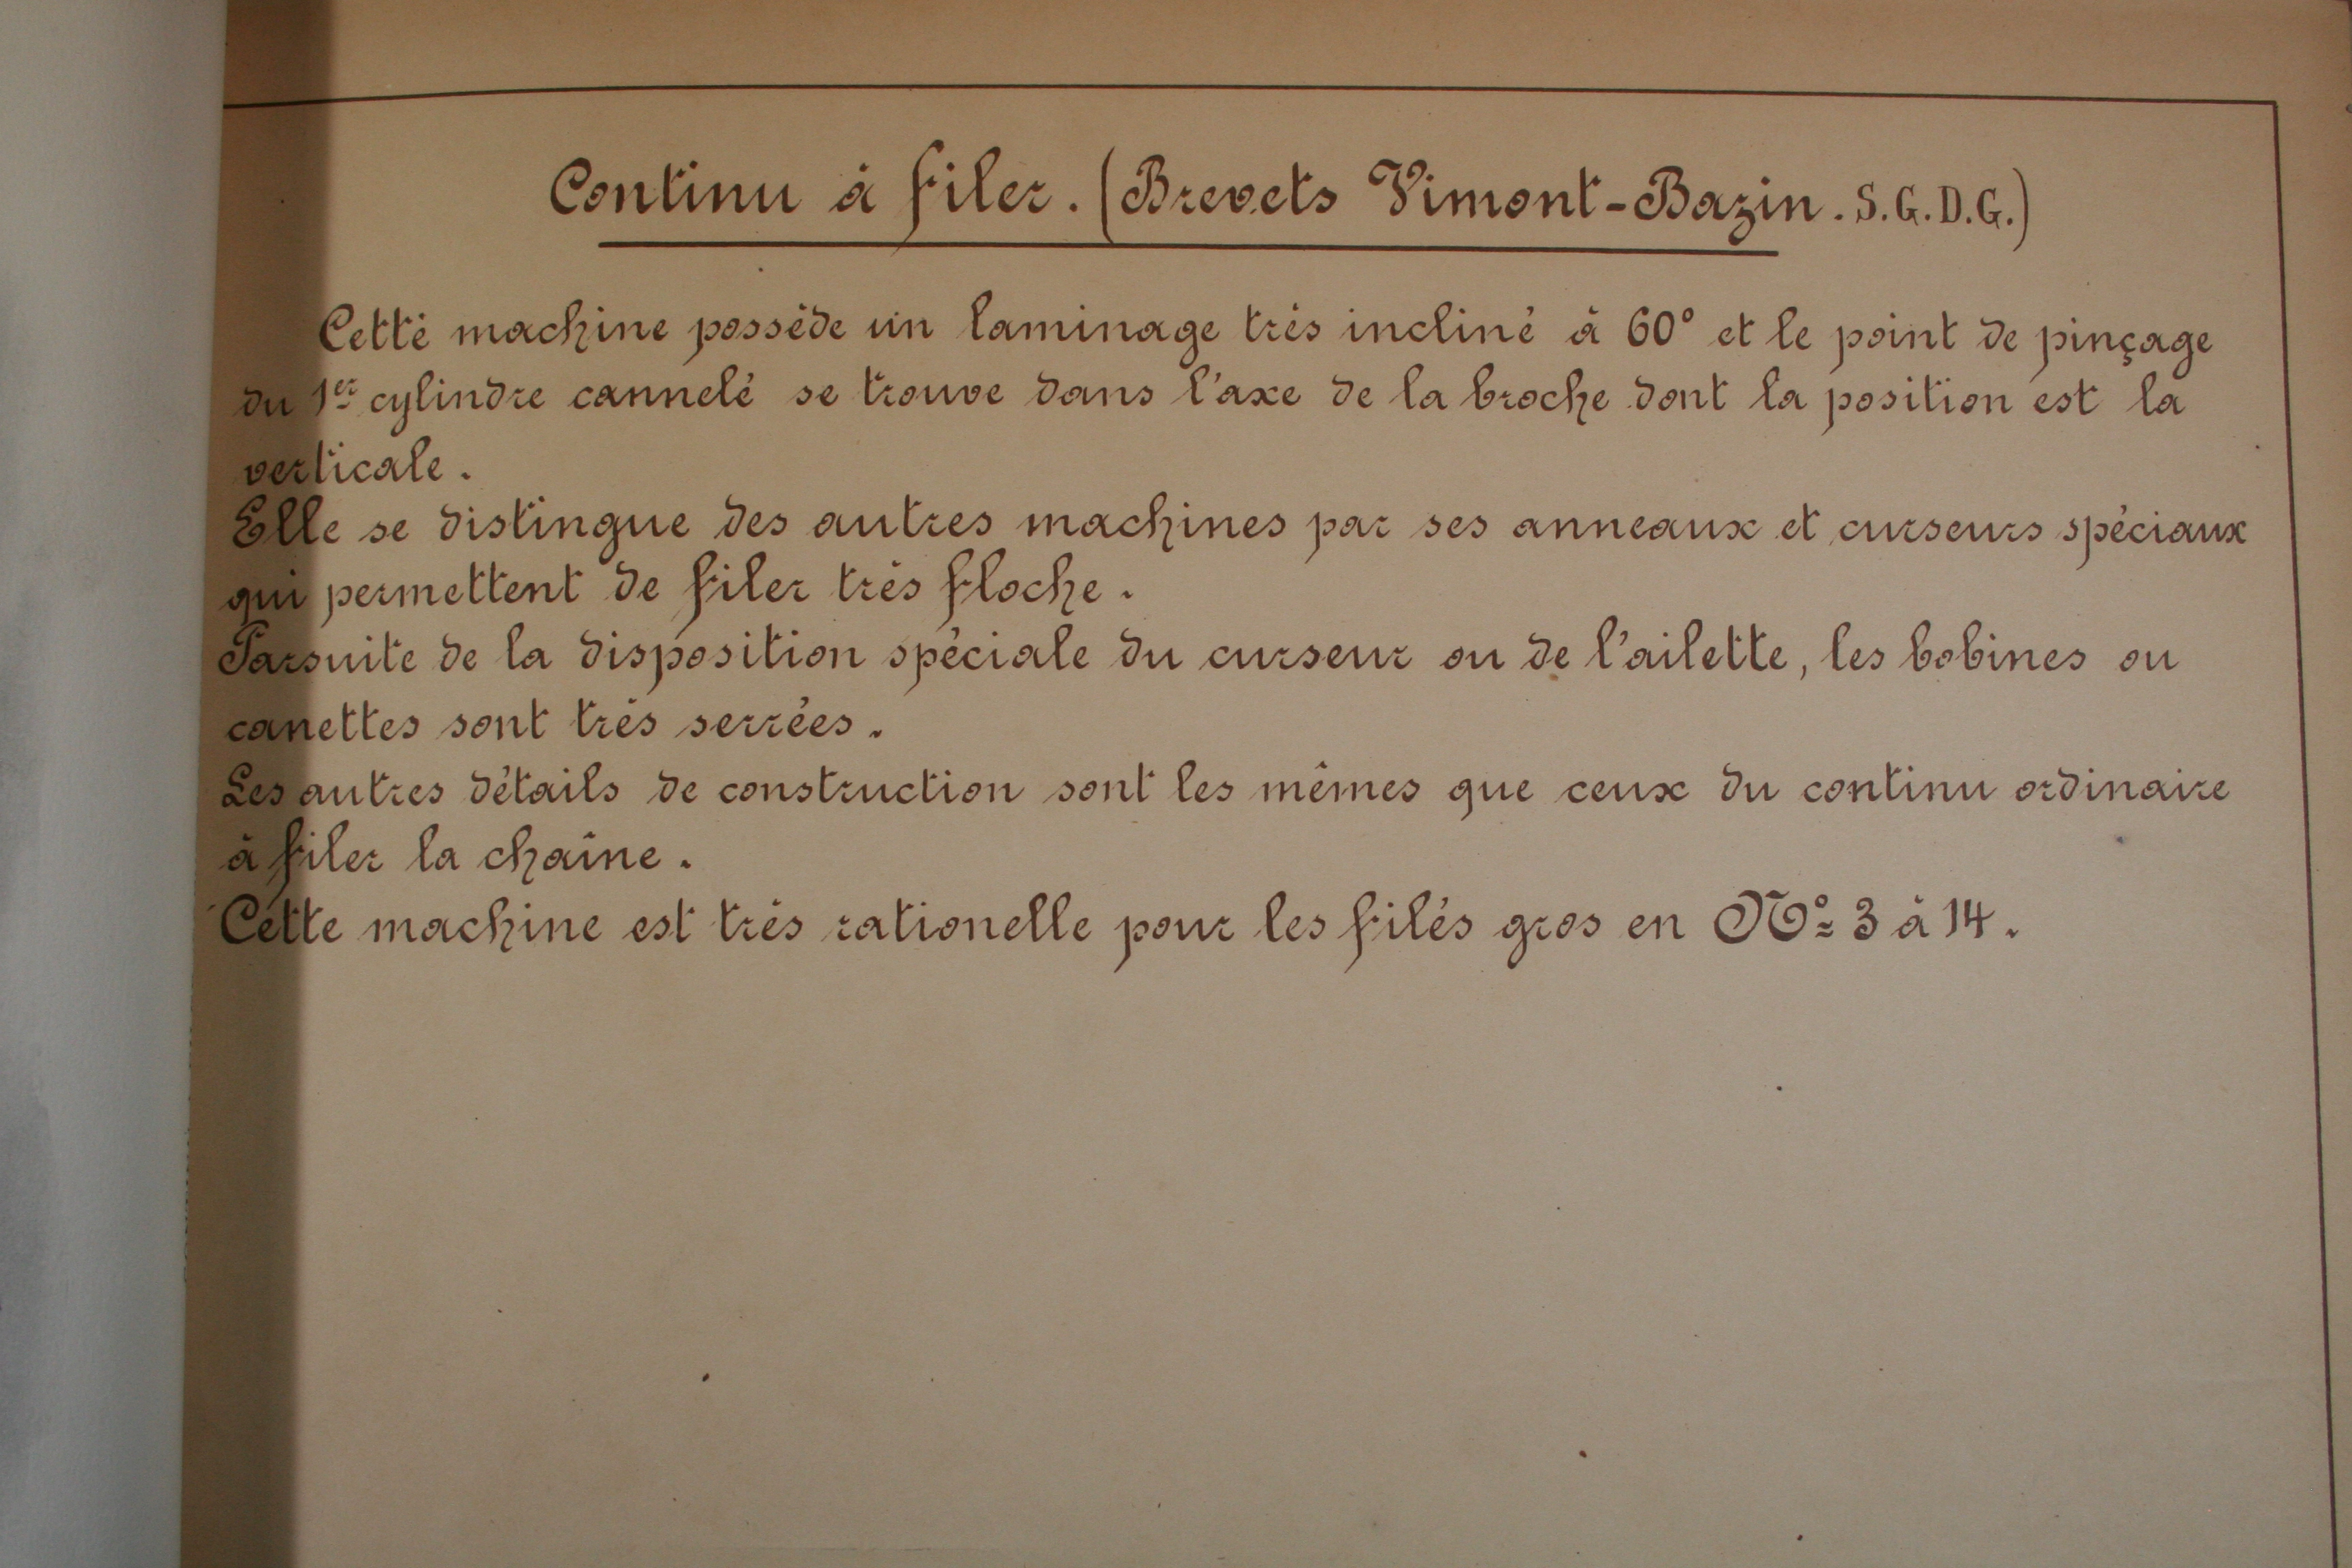 Continu à filer. (Brevets Vimont-Bazin. S.G.D.G.)
Cette machine possède un laminage très incliné à 60° et le point de pinçage
du 1er cylindre cannelé se trouve dans l'axe de la broche dont la position est la
verticale.
Elle se distingue des autres machines par ses anneaux et curseurs spéciaux
qui permettent de filer très floche.
Parsuite de la disposition spéciale du curseur ou de l'ailette, les bobines ou
canettes sont très serrées.
Les autres détails de construction sont les mêmes que ceux du continu ordinaire
à filer la chaîne.
Cette machine est très rationelle pour les filés gros en Nº 3 à 14.